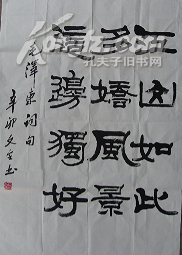 江山如此
多嬌風景
這邊獨好
毛澤東詞句
辛卯文书
孔夫子旧书网